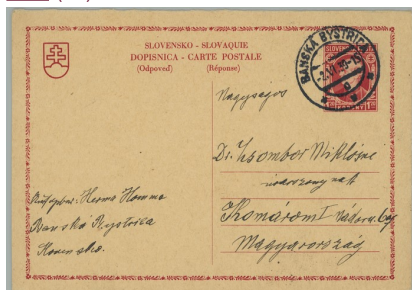 SLOVENSKO - SLOVAQUIE
DOPISNICA - CARTE POSTALE
(Odpoveď) (Réponse)
BANSKÁ BYSTRICA
Nagyságos
Dr. Zsombor Miklósné
úrasszonynak
Komárom I
Magyarország
Hermo Homma
Banská Bystrica
Slovensko.